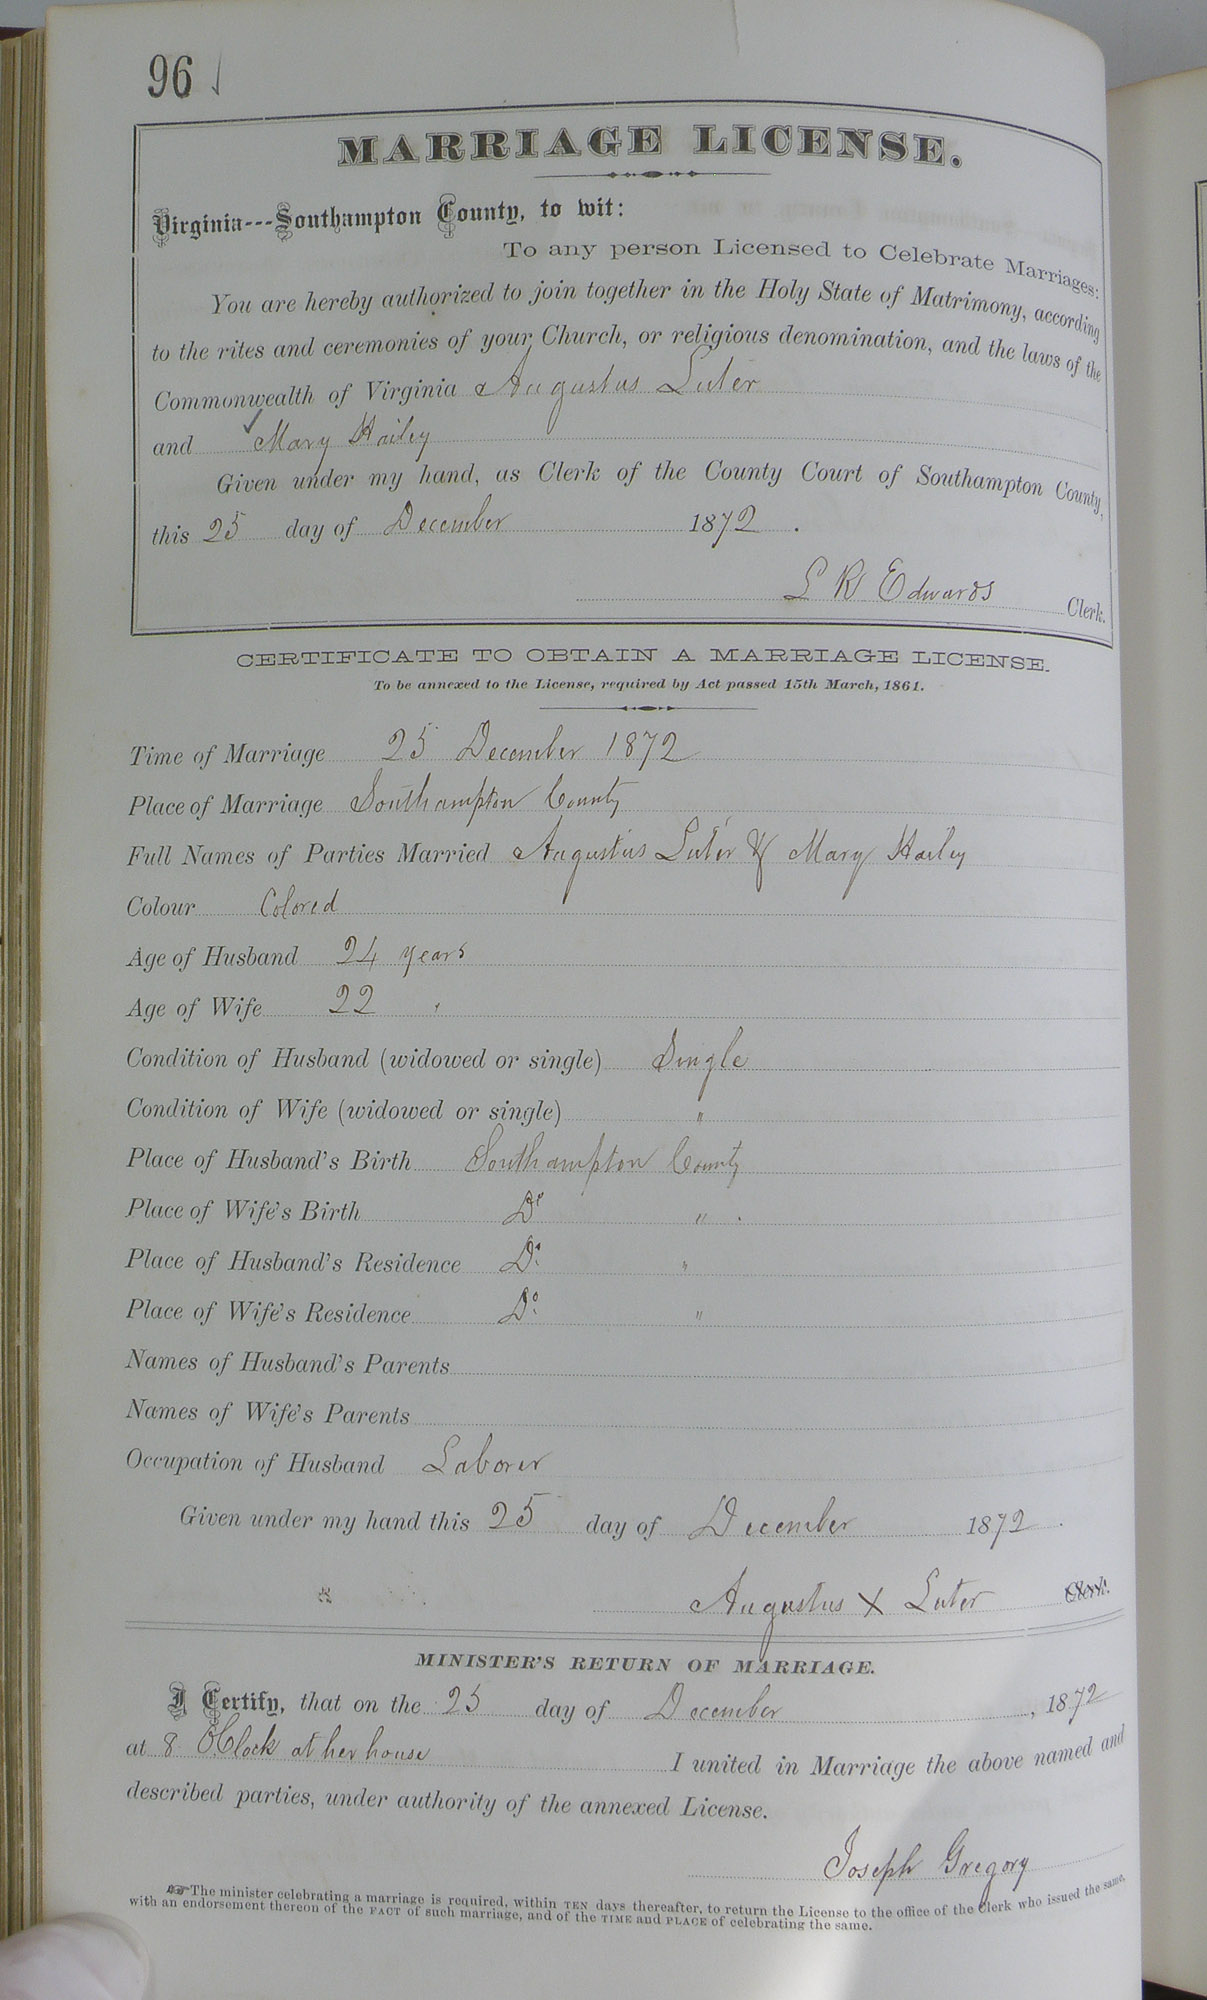 96
MARRIAGE LICENSE.
Virginia---Southampton County, to wit:
To any person Licensed to Celebrate Marriages:
You are hereby authorized to join together in the Holy State of Matrimony, according
to the rites and ceremonies of your Church, or religious denomination, and the laws of the
Commonwealth of Virginia Augustus Luter
and Mary Hailey
Given under my hand, as Clerk of the County Court of Southampton County,
this 25 day of December 1872.
L R Edwards Clerk.
CERTIFICATE TO OBTAIN A MARRIAGE LICENSE.
To be annexed to the License, required by Act passed 15th March, 1861.
Time of Marriage 25 December 1872
Place of Marriage Southampton County
Full Names of Parties Married Augustus Luter & Mary Hailey
Colour Colored
Age of Husband 24 years
Age of Wife 22 "
Condition of Husband (widowed or single) Single
Condition of Wife (widowed or single) "
Place of Husband's Birth Southampton County
Place of Wife's Birth Do "
Place of Husband's Residence Do "
Place of Wife's Residence Do "
Names of Husband's Parents
Names of Wife's Parents
Occupation of Husband Laborer
Given under my hand this 25 day of December 1872.
Augustus X Luter Clerk.
MINISTER'S RETURN OF MARRIAGE.
I Certify, that on the 25 day of December, 1872
at 8 O'Clock at her house I united in Marriage the above named and
described parties, under authority of the annexed License.
Joseph Gregory
☞The minister celebrating a marriage is required, within TEN days thereafter, to return the License to the office of the Clerk who issued the same,
with an endorsement thereon of the FACT of such marriage, and of the TIME and PLACE of celebrating the same.